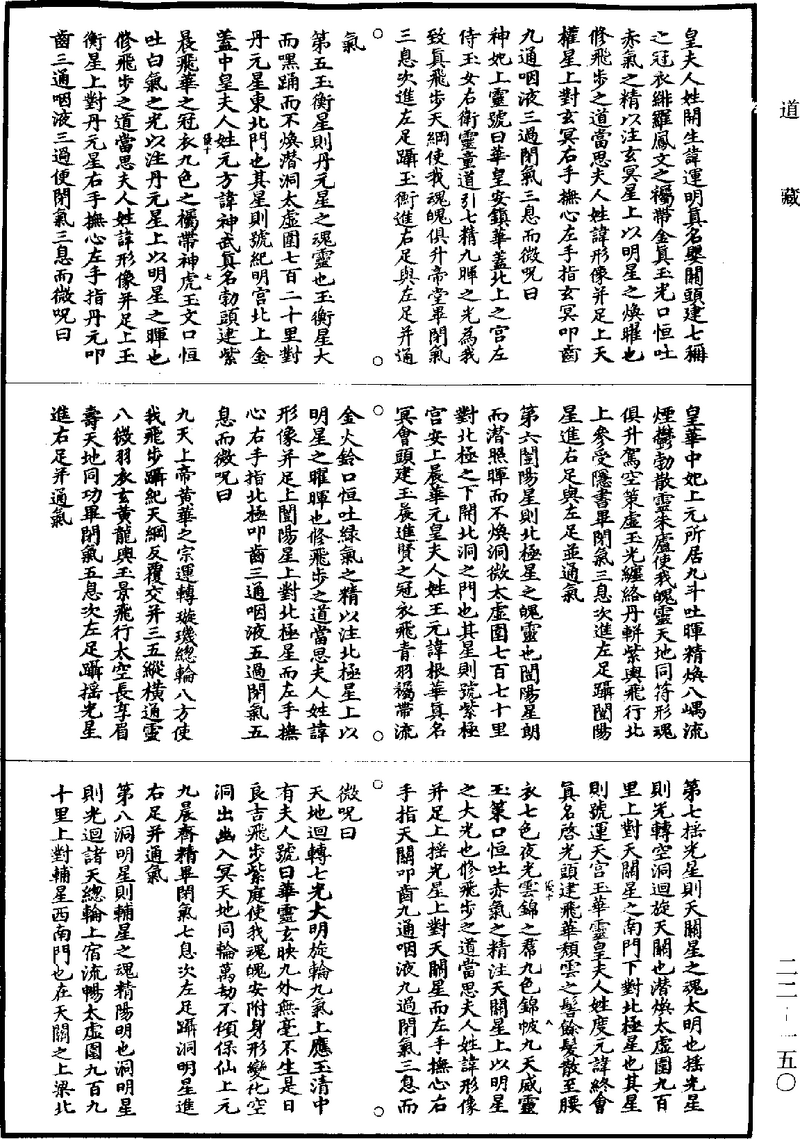 道藏
皇夫人姓開生諱運明真名嬰關頭建七稱
之冠衣緋羅鳳文之襡帶金真玉光口恒吐
赤氣之精以注玄冥星上以明星之煥曜也
修飛步之道當思夫人姓諱形像并足上天
權星上對玄冥右手撫心左手指玄冥叩齒
九通咽液三過閉氣三息而微呪曰
神妃上靈號曰華皇安鎮華蓋北上之宮左
侍玉女右衛靈童道引七精九暉之光為我
致真飛步天綱使我魂魄俱升帝堂畢閉氣
三息次進左足躡玉衡進右足與左足并通
氣
第五玉衡星則丹元星之魂靈也玉衡星大
而嘿踊而不煥潛洞太虛圍七百二十里對
丹元星東北門也其星則號紀明宮北上金
蓋中皇夫人姓元方諱神武真名勃頭建紫
晨飛華之冠衣九色之襡帶神虎玉文口恒
吐白氣之光以注丹元星上以明星之暉也
修飛步之道當思夫人姓諱形像并足上玉
衡星上對丹元星右手撫心左手指丹元叩
齒三通咽液三過便閉氣三息而微呪曰
皇華中妃上元所居九斗吐暉精煥八嵎流
煙鬱勃散靈朱廬使我魄靈天地同符形魂
俱升駕空策虛玉光纏絡丹輧紫輿飛行北
上參受隱書畢閉氣三息次進左足躡闓陽
星進右足與左足並通氣
第六闓陽星則北極星之魄靈也闓陽星朗
而潛照暉而不煥洞微太虛圍七百七十里
對北極之下開北洞之門也其星則號紫極
宮安上晨華元皇夫人姓王元諱根華真名
冥會頭建玉晨進賢之冠衣飛青羽襡帶流
金火鈴口恒吐綠氣之精以注北極星上以
明星之曜暉也修飛步之道當思夫人姓諱
形像并足上闓陽星上對北極星而左手撫
心右手指北極叩齒三通咽液五過閉氣五
息而微呪曰
九天上帝黃華之宗運轉璇璣總輪八方使
我飛步躡紀天綱反覆交并三五縱橫通靈
八微羽衣玄黃龍輿玉景飛行太空長享眉
壽天地同功畢閉氣五息次左足躡搖光星
進右足并通氣
第七搖光星則天關星之魂太明也搖光星
則光轉空洞迴旋天關也潛煥太虛圍九百
里上對天關星之南門下對北極星也其星
則號運天宮玉華靈皇夫人姓度元諱終會
真名啓光頭建飛華頹雲之髻餘髮散至腰
衣七色夜光雲錦之帬九色錦帔九天威靈
玉策口恒吐赤氣之精注天關星上以明星
之大光也修飛步之道當思夫人姓諱形像
并足上搖光星上對天關星而左手撫心右
手指天關叩齒九通咽液九過閉氣三息而
微呪曰
天地迴轉七光大明旋輪九氣上應玉清中
有夫人號曰華靈玄映九外無毫不生是日
良吉飛步紫庭使我魂魄安附身形變化空
洞出幽入冥天地同輪萬劫不傾保仙上元
九晨齊精畢閉氣七息次左足躡洞明星進
右足并通氣
第八洞明星則輔星之魂精陽明也洞明星
則光迴諸天總輪上宿流暢太虛圍九百九
十里上對輔星西南門也在天關之上梁北
二二-一五〇